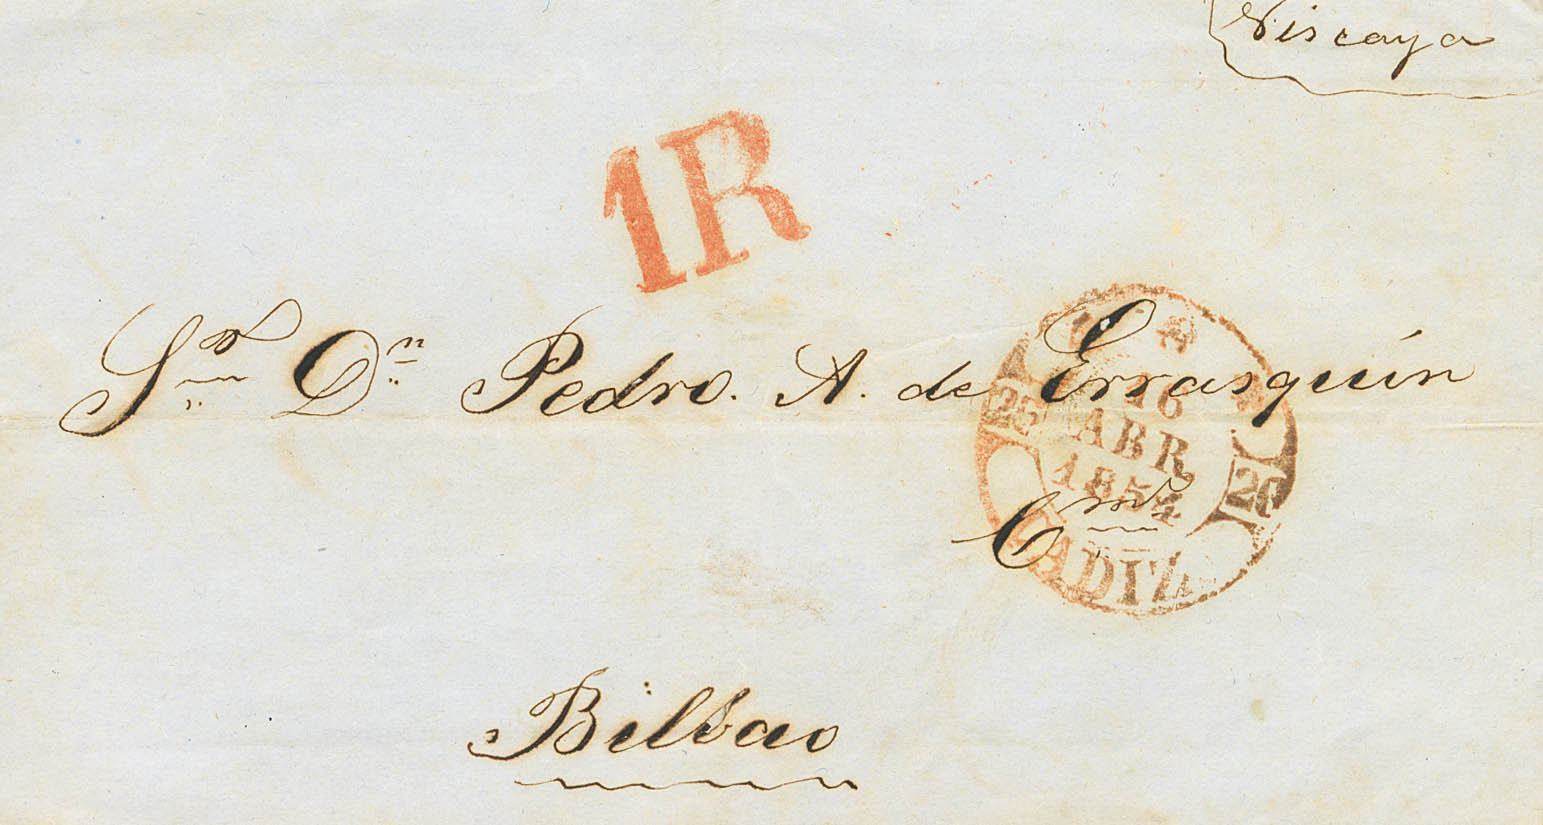 Viscaya
1R
Sr Dn Pedro. A. de Errasquin
25 25
16
ABR
1854
CADIZ
Bilbao